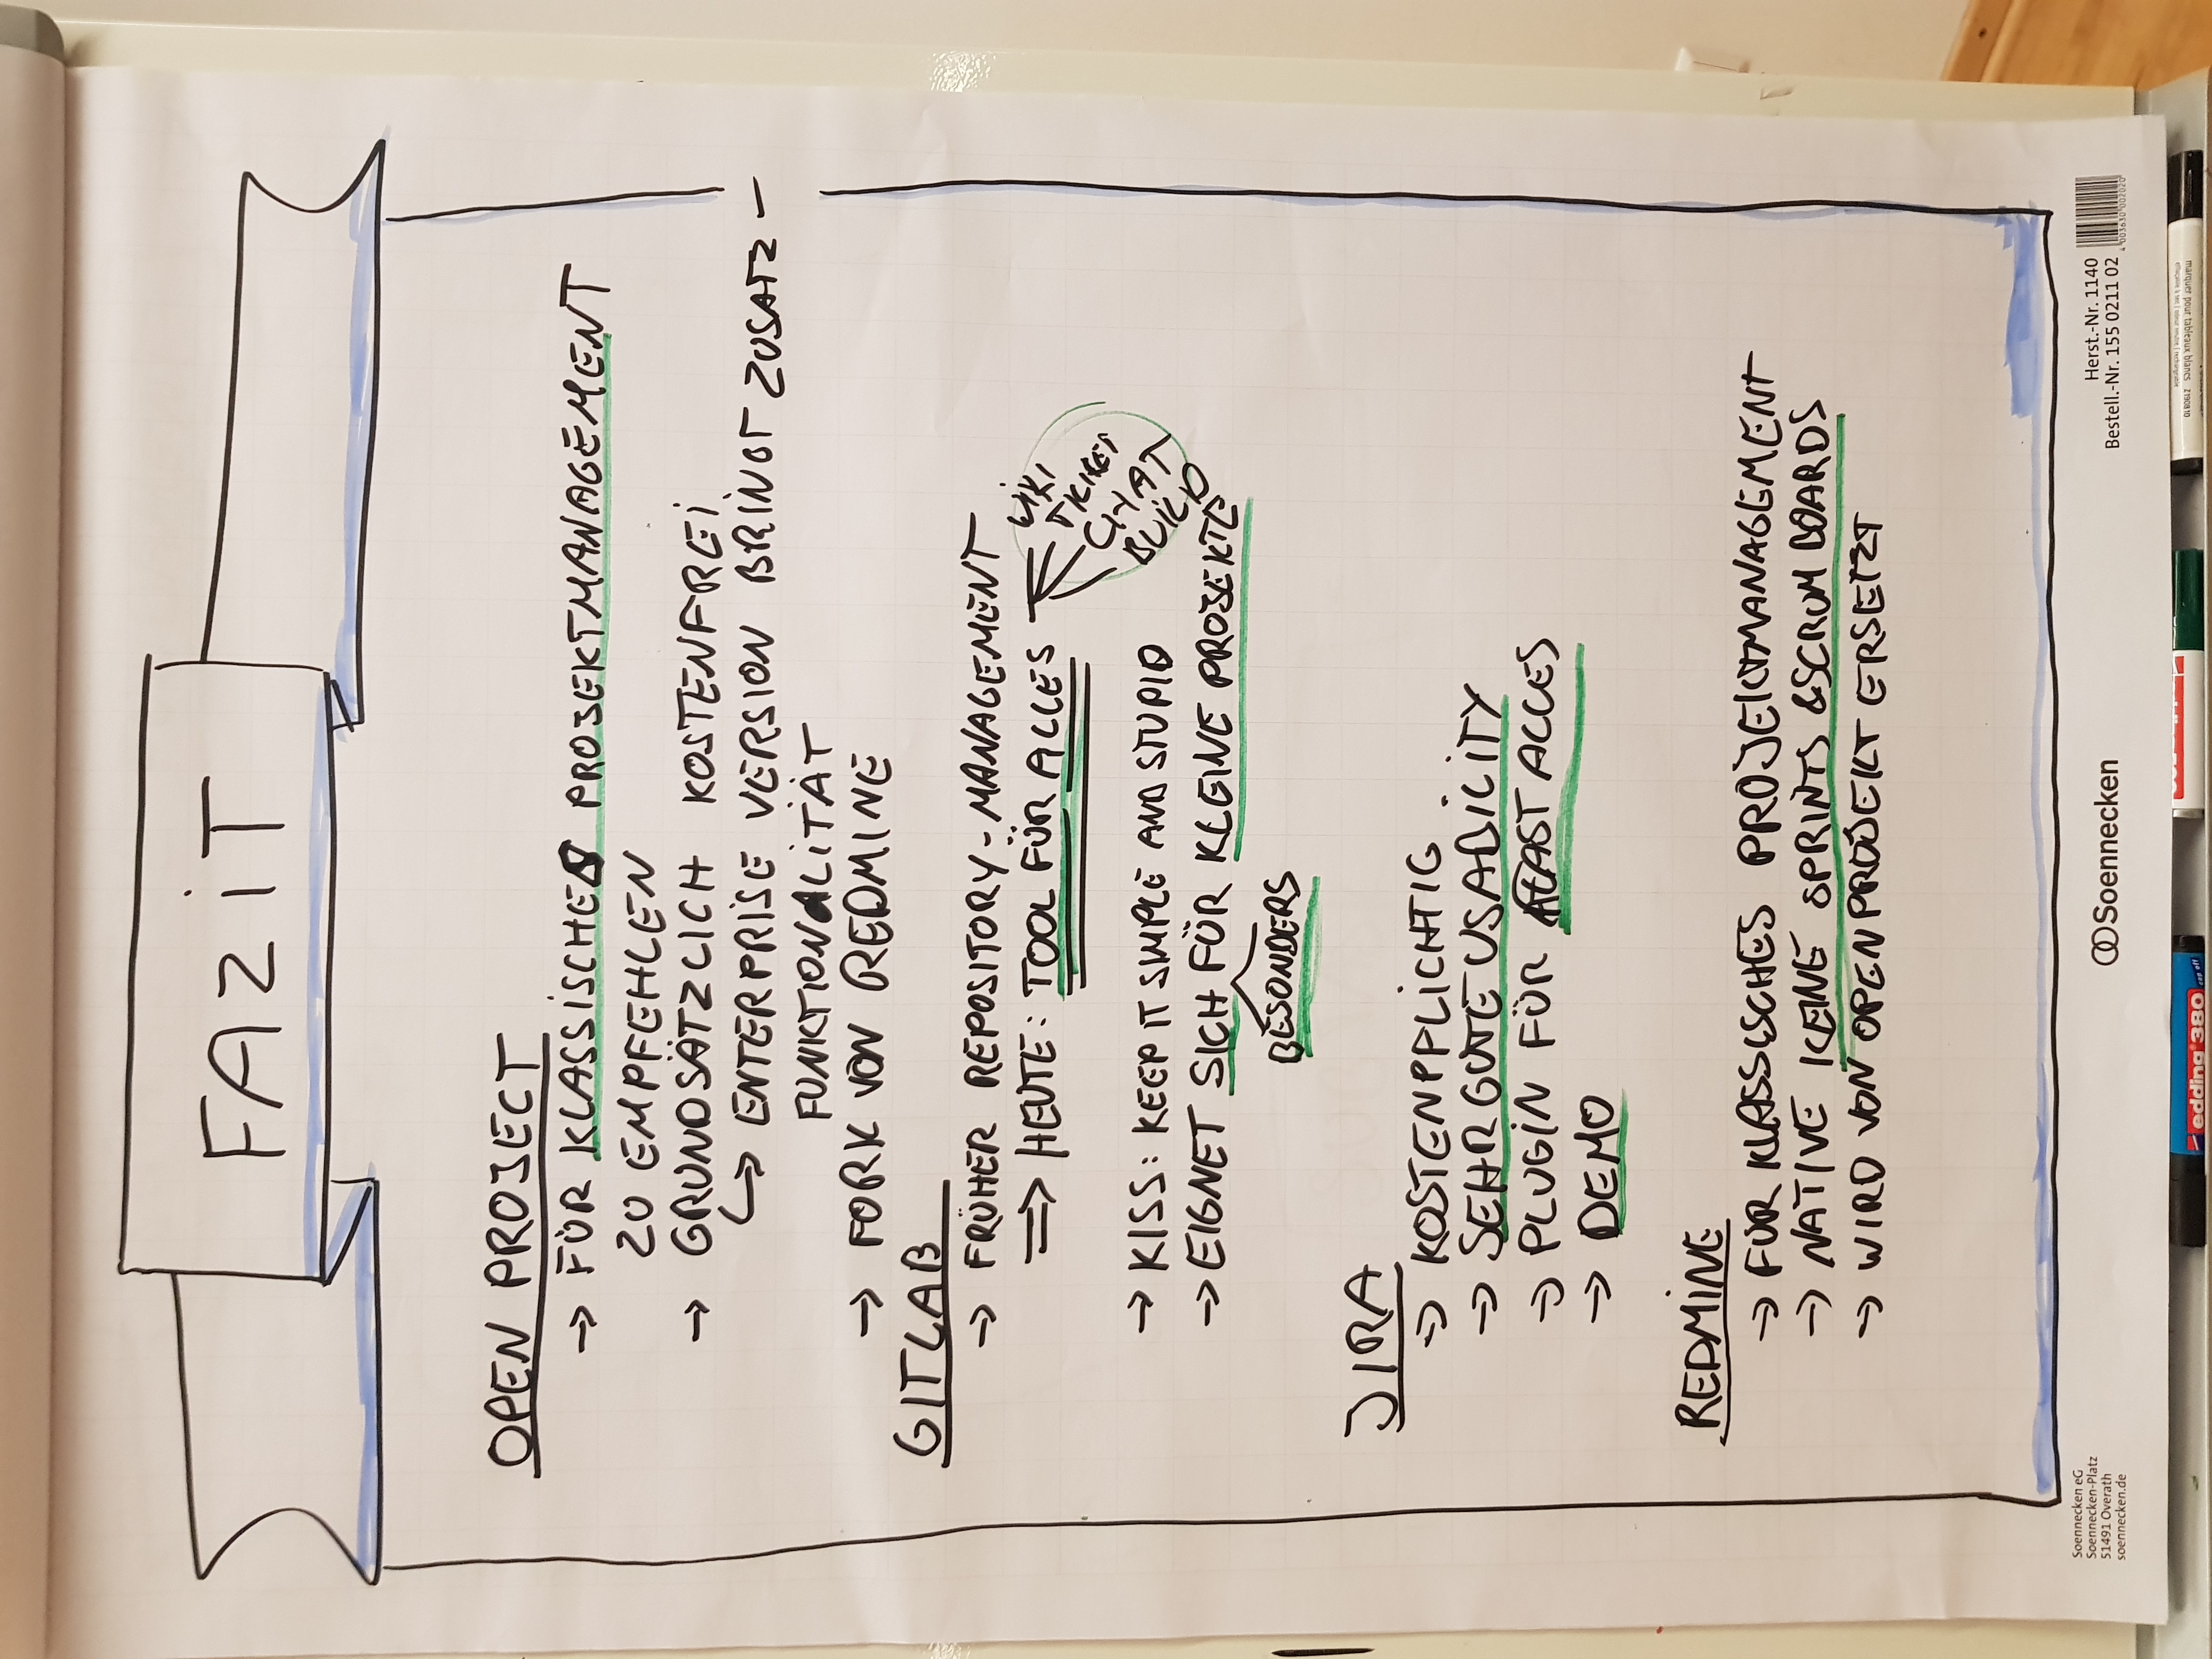 FAZiT
OPEN PROJECT
→ FÜR KLASSISCHES PROJEKTMANAGEMENT
ZU EMPFEHLEN
→ GRUNDSÄTZLICH KOSTENFREi
↳ ENTERPRiSE VERSION BRiNGT ZUSATZ-
FUNKTIONALiTÄT
→ FORK VON REDMINE
GITLAB
→ FRÜHER REPOSITORY-MANAGEMENT
⇒ HEUTE: TOOL FÜR ALLES
WiKi
TICKET
CHAT
BUILD
→ KISS: KEEP IT SIMPLE AND STUPID
→ EIGNET SICH FÜR KLEINE PROJEKTE
BESONDERS
JIRA
→ KOSTENPFLiCHTIG
→ SEHR GUTE USABiLiTY
→ PLUGiN FÜR FAST ALLES
→ DEMO
REDMiNE
→ FÜR KLASSISCHES PROJEKTMANAGEMENT
→ NATIVE KEINE SPRINTS & SCRUM BOARDS
→ WIRD VON OPENPROJEKT ERSETZT
Soennecken eG
Soennecken-Platz
51491 Overath
soennecken.de
Soennecken
Herst.-Nr. 1140
Bestell.-Nr. 155 0211 02
4 003630 002020
edding 380 cap off
marquer pour tableaux blancs